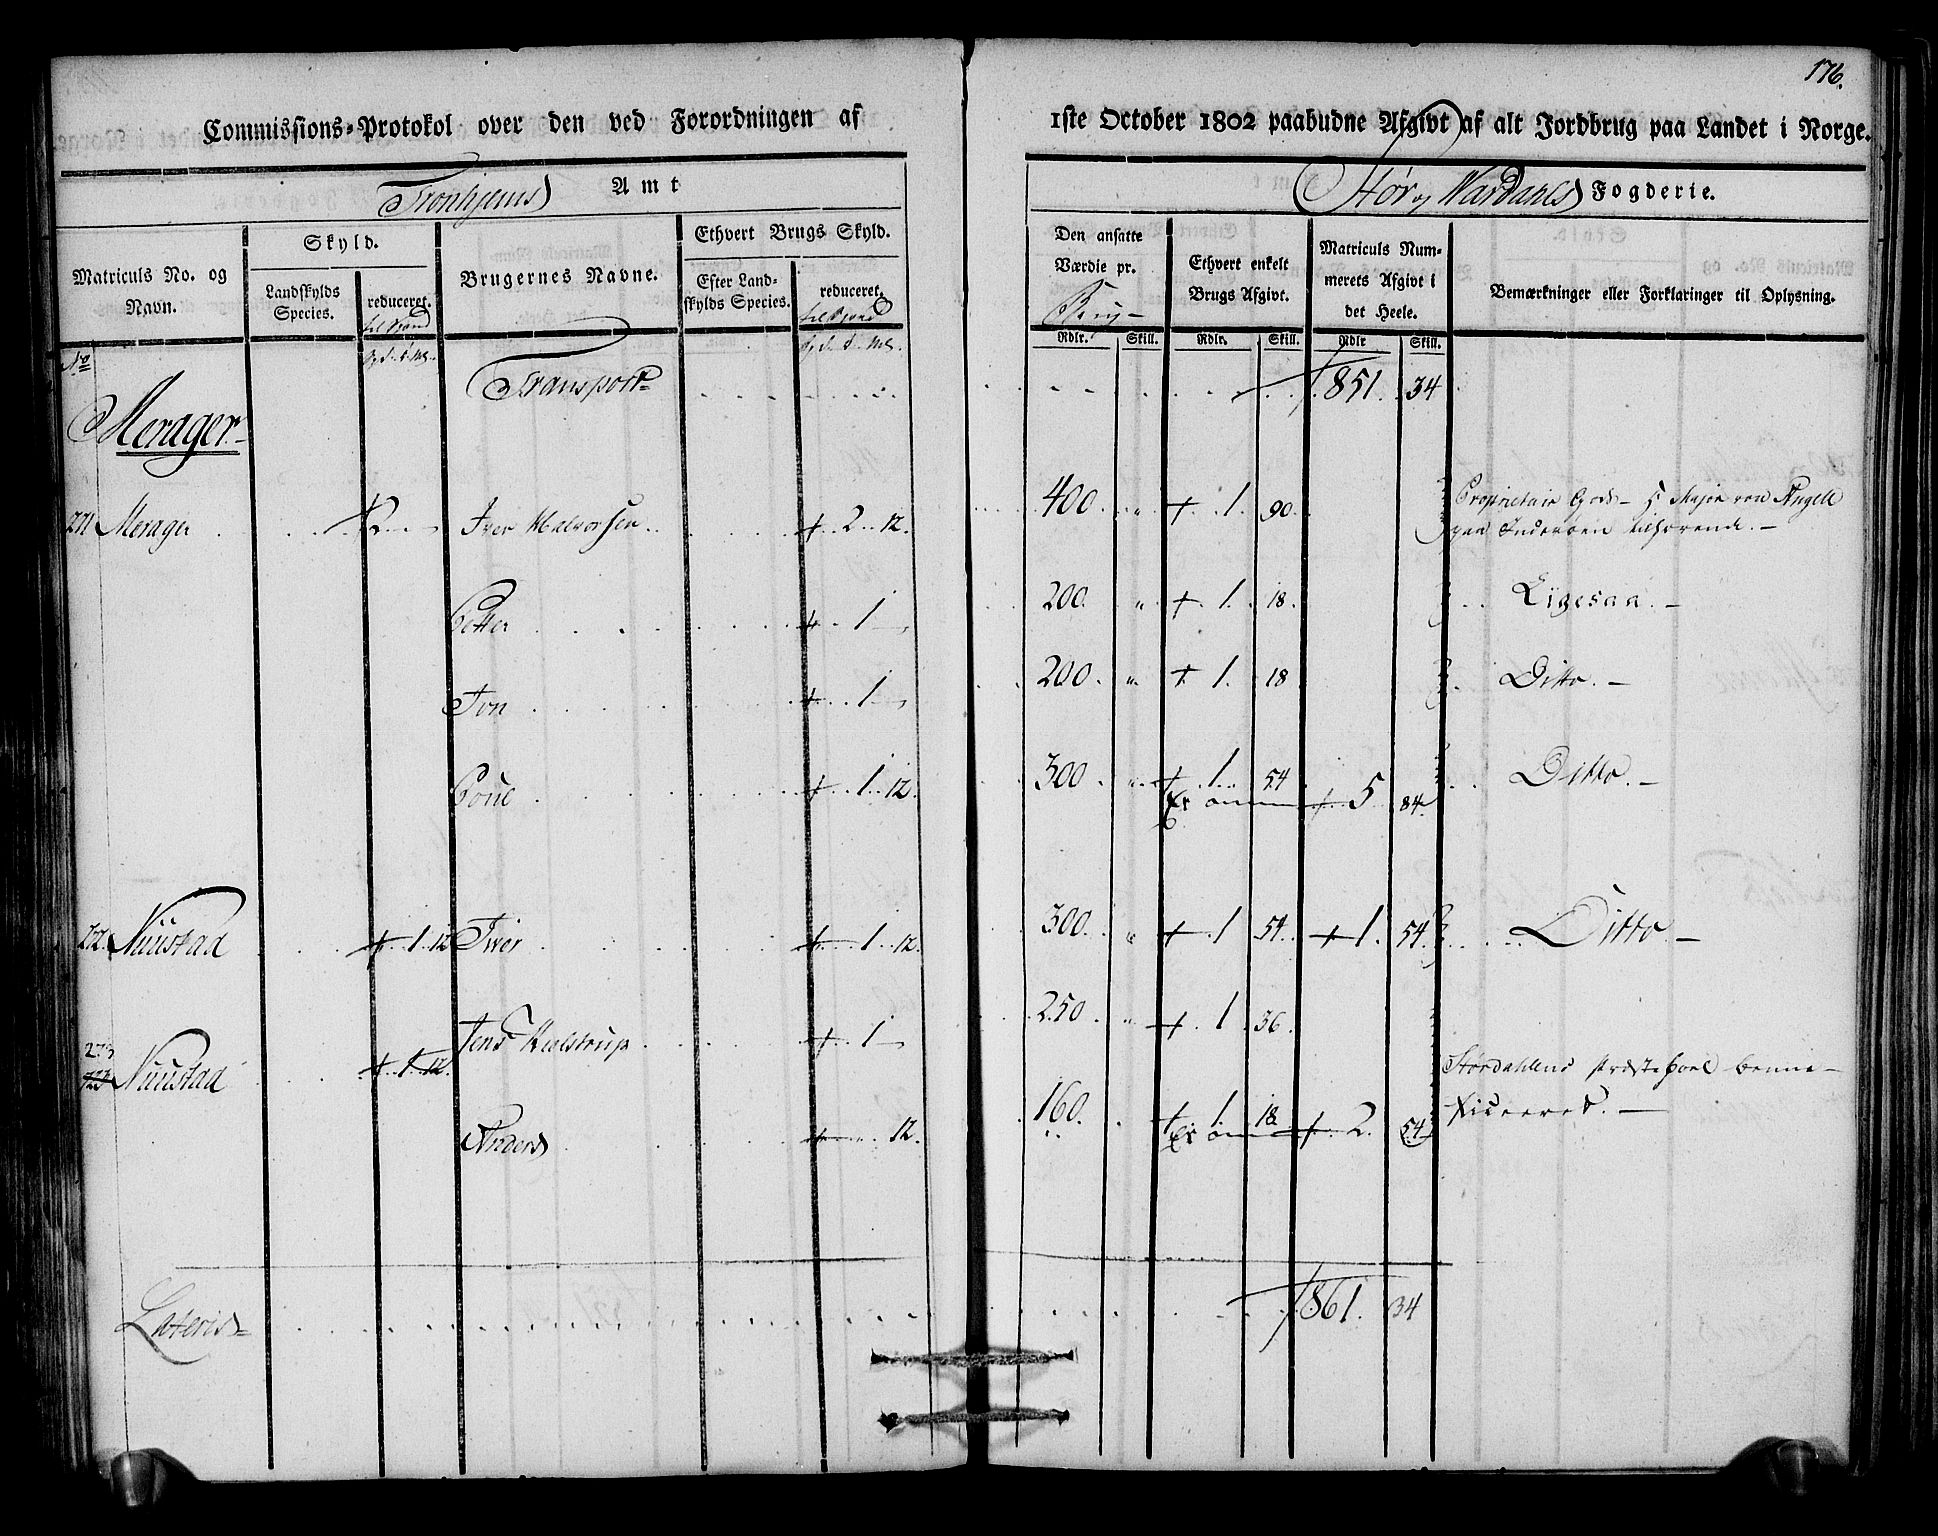 176.
Commissions-Protokol over den ved Forordningen af 1ste October 1802 paabudne Afgivt af alt Jordbrug paa Landet i Norge.
Tronhjems Amt
Stør og Værdahls Fogderie.
Matriculs No. og Navn.
Skyld.
Landskylds Species.
reduceret.
Brugernes Navne.
Ethvert Brugs Skyld.
Efter Landskylds Species.
reduceret.
Den ansatte Værdie pr.
Brug
Ethvert enkelt Brugs Afgivt.
Matriculs Nummerets Afgivt i det Heele.
Bemærkninger eller Forklaringer til Oplysning.
Rdlr. Skill. Rdlr. Skill. Rdlr Skill.
No
Transport 851. 34
Merager
271 Merager Iver Halvorsen 2 12. 400 1. 90. Proprietair Gods
Petter 1 200. 1. 18. Ligesaa.
Jon 1 200. 1. 18 Ditto.
Poul 1 12. 300 1 54 5 84 Ditto.
272. Nuustad 1 12 Iver 1 12. 300. 1 54. 1. 54. Ditto
273 Nuustad 1 12. Jens Kielstrup 1 250. 1 36. Størdahlens
Anders 12. 160. 1 18 2. 54
Lateris 861. 34